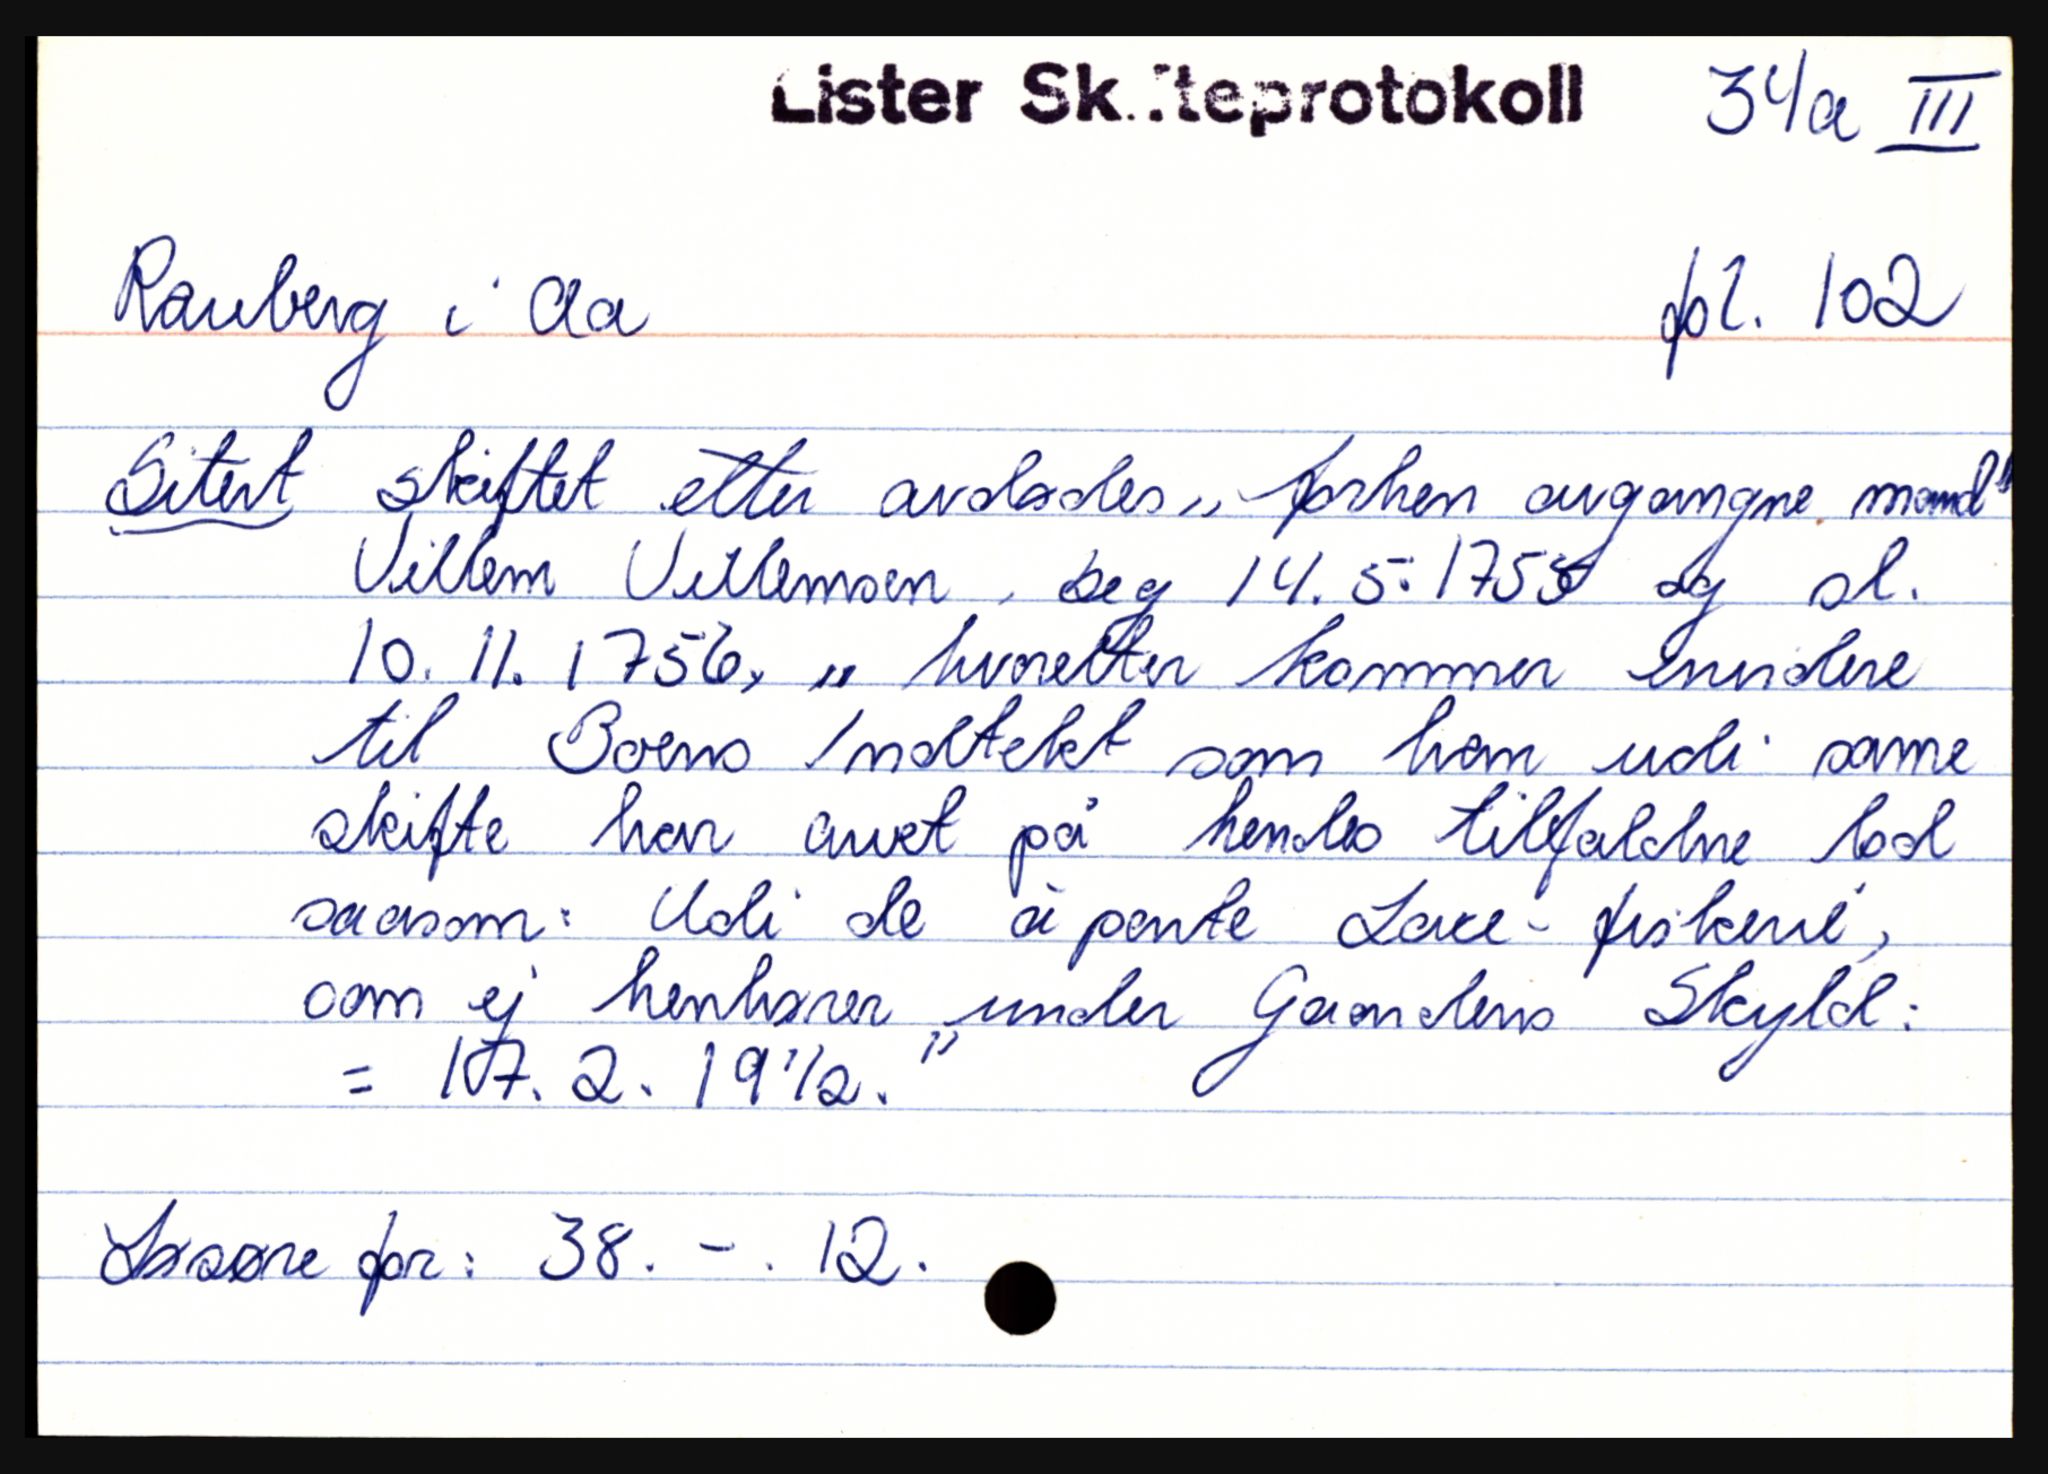 Lister Skifteprotokoll 34a III
Rauberg i Aa fol. 102
Sitert skiftet etter avdødes „ forhen avgangne mand"
Villem Villemsen, beg 14.5.1755 og sl.
10. 11. 1756, „ hvoretter kommer innidere
til Boens Indtekt som han udi same
skifte har arvet på hendes tilfaldne lod
saasom: Udi de à parte Laxe-fiskerié,
som ej henhører under Gaardens Skyld:
= 107. 2. 19 1/2."
Løsøre for: 38. -. 12.